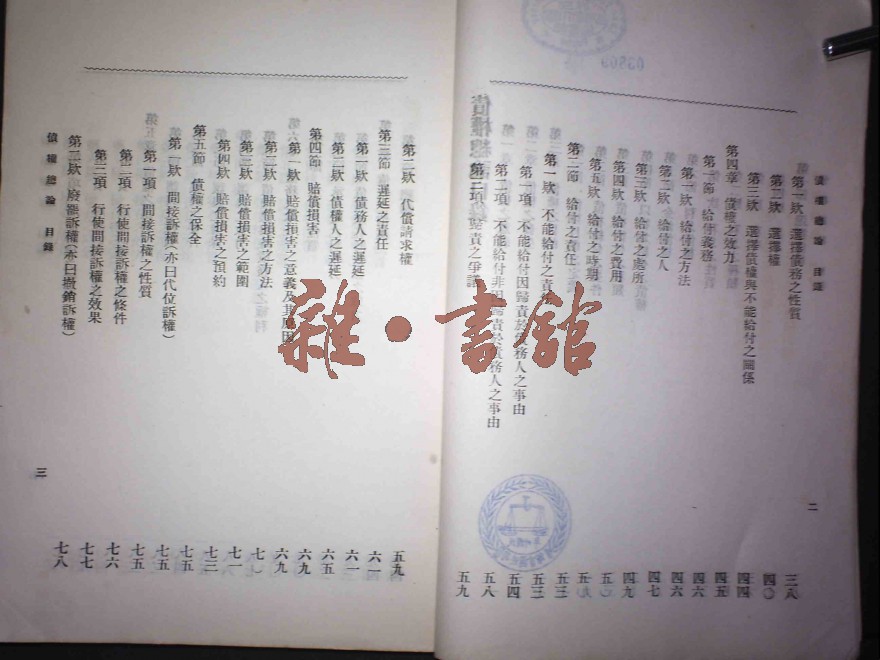 債權總論 目錄 二
第一欵 選擇債務之性質 三八
第二欵 選擇權 四〇
第三欵 選擇權與不能給付之關係 四四
第四章 債權之效力 四五
第一節 給付義務 四六
第一欵 給付之方法 四六
第二欵 給付之人 四七
第三欵 給付之處所 四九
第四欵 給付之費用 五〇
第五欵 給付之時期
第二節 給付之責任 五三
第一欵 不能給付之責任 五三
第一項 不能給付因歸責於債務人之事由 五四
第二項 不能給付非因歸責於債務人之事由 五八
第三項 歸責之爭議 五九
第二欵 代償請求權 五九
第三節 遲延之責任 六一
第一欵 債務人之遲延 六一
第二欵 債權人之遲延 六五
第四節 賠償損害 六九
第一欵 賠償損害之意義及其原因 六九
第二欵 賠償損害之方法 七〇
第三欵 賠償損害之範圍 七一
第四欵 賠償損害之預約 七三
第五節 債權之保全 七五
第一欵 間接訴權(亦曰代位訴權) 七五
第一項 間接訴權之性質 七五
第二項 行使間接訴權之條件 七六
第三項 行使間接訴權之效果 七七
第二欵 廢罷訴權(亦曰撤銷訴權) 七八
債權總論 目錄 三
雜·書館